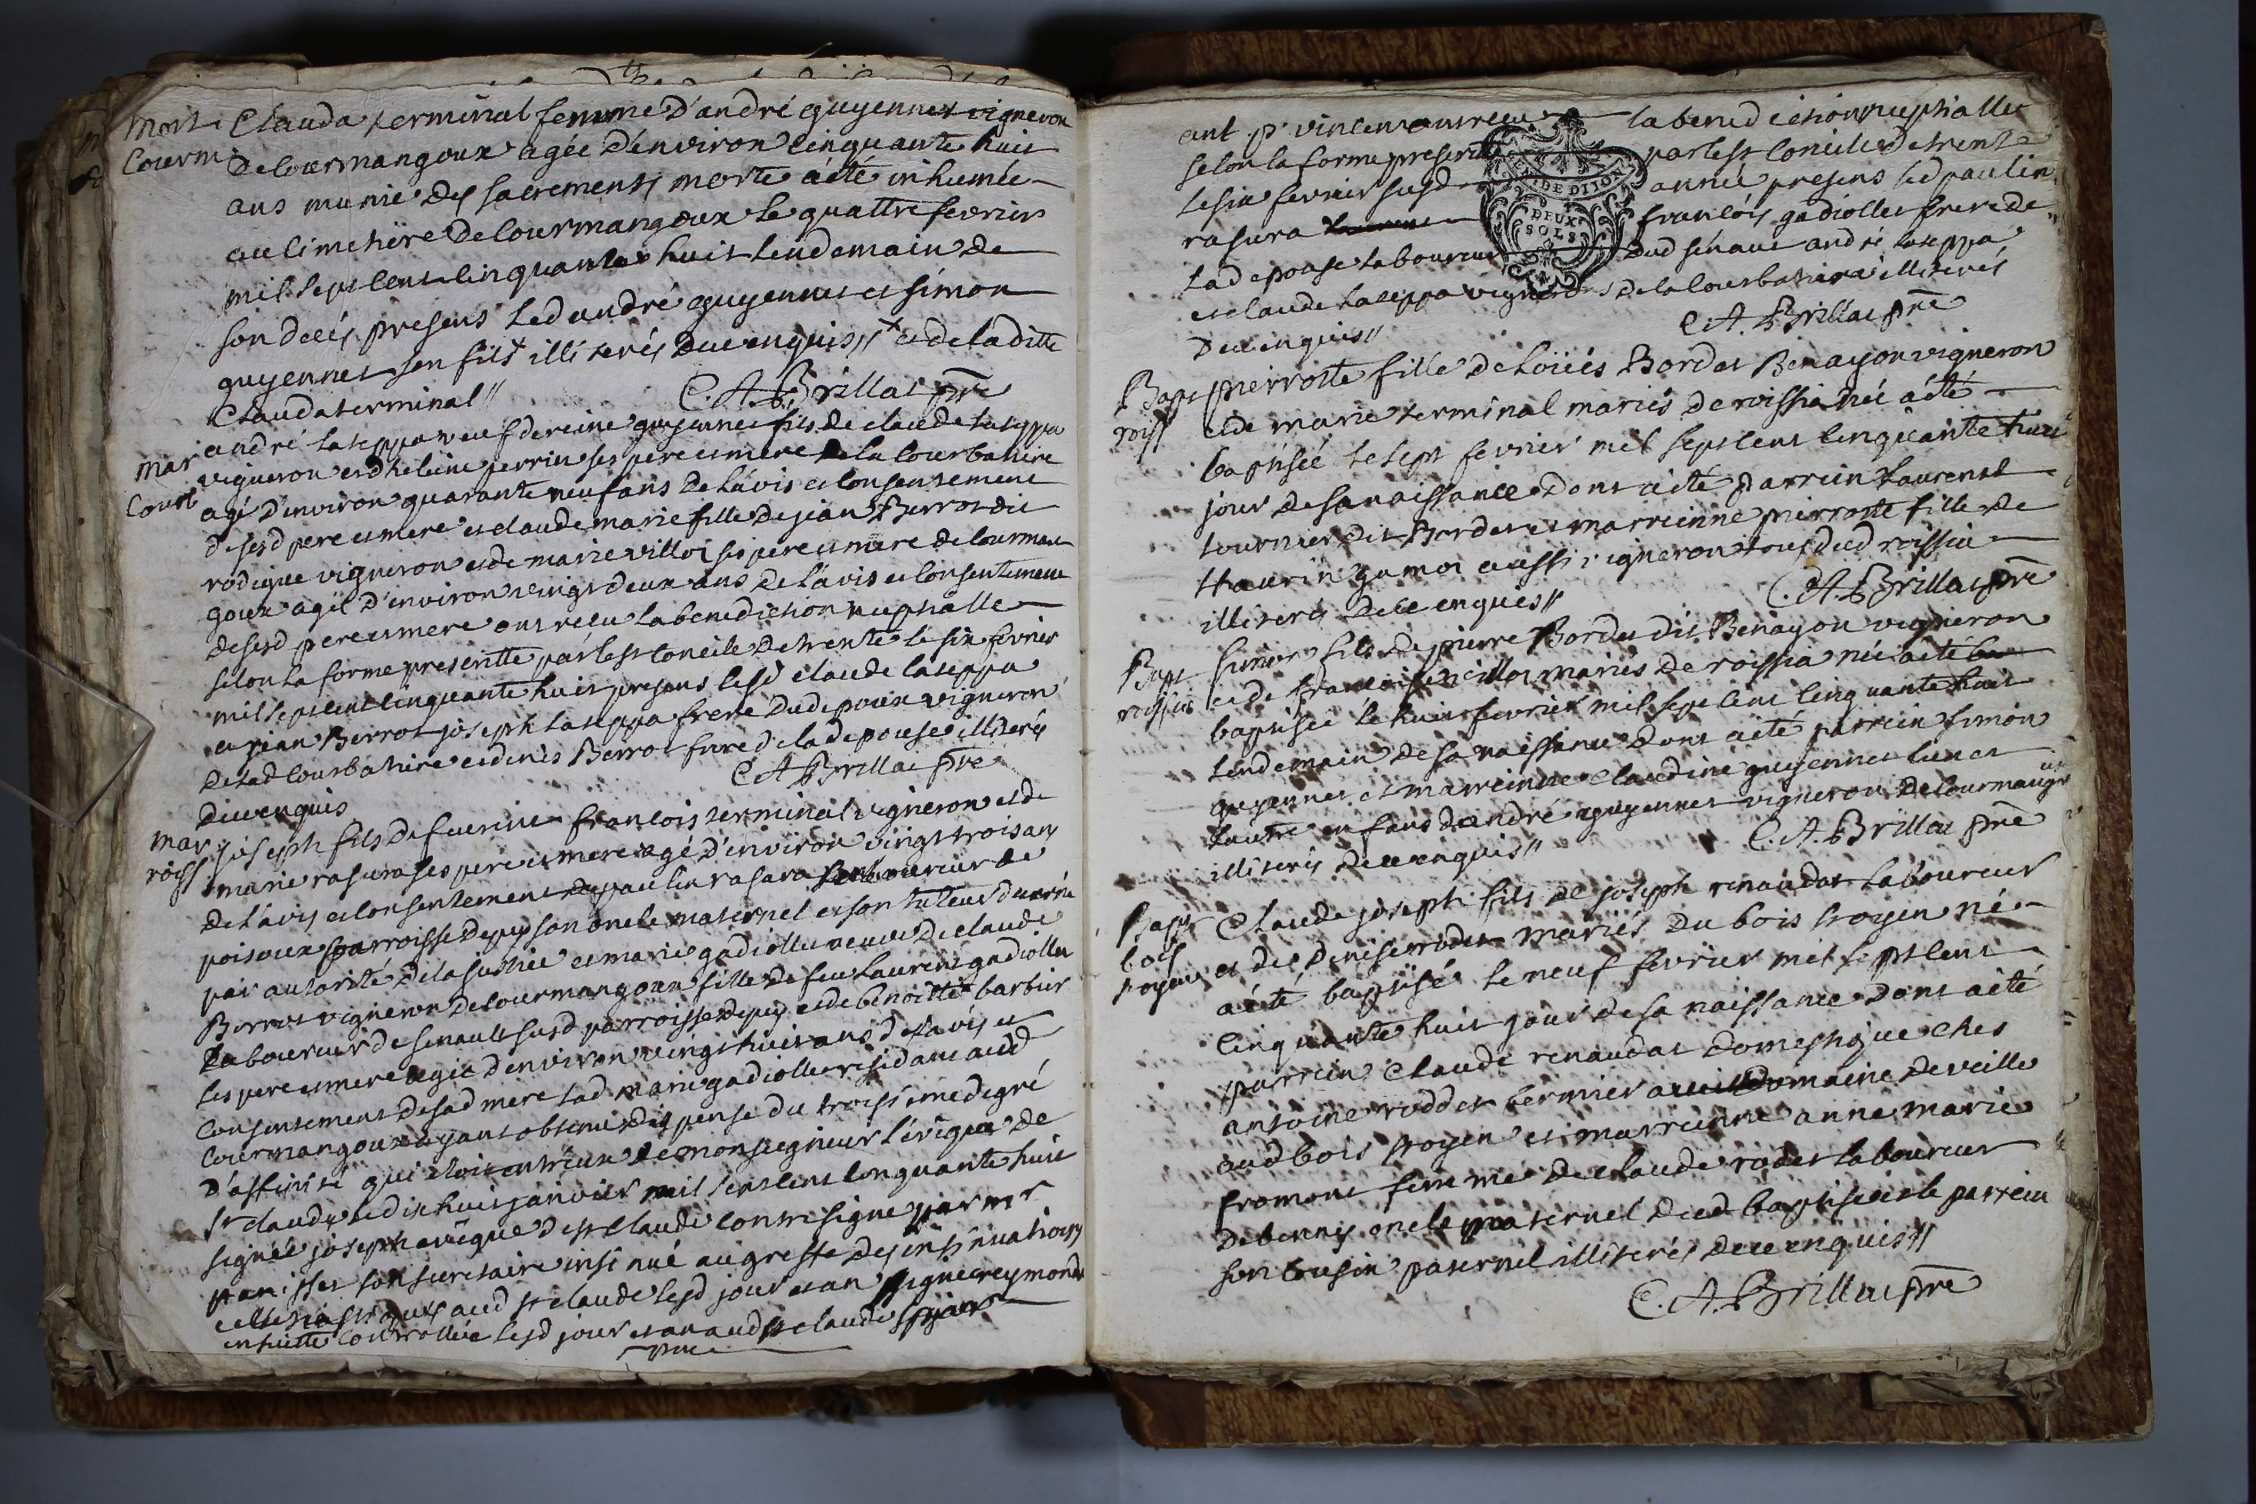 Mort Clauda terminal femme d'andré guyennet vigneron
Courm. de Courmangoux agée d'environ cinquante huit
ans munie des sacrements morte a été inhumée
au cimetiere de Courmangoux le quattre fevrier
mil sept cent cinquante huit lendemain de
son decés presens led andré guyennet et simon
guyennet son fils illiterés de ce enquis // x et de la ditte
Clauda terminal //
C. A. Brillat pre
Mar andré taseppa veuf de reine guyennet fils de claude taseppa
Courb vigneron et d'heleine perrin ses pere et mere de la courbatiere
agé d'environ quarante neuf ans de l'avis et consentement
de sesd pere et mere et claude marie fille de jean Berrot dit
rodigue vigneron et de marie villoi ses pere et mere de Courman
goux agée d'environ vingt deux ans de l'avis et consentement
de sesd pere et mere ont reçu la benediction nuptialle
selon la forme prescritte par le st Concile de trente le six fevrier
mil sept cent cinquante huit presens lesd claude taseppa
et jean Berrot joseph taseppa frere dud epoux vigneron
de lad Courbatiere et denis Berrot frere de lad epouse illiterés
de ce enquis
C A Brillat pre
Mar joseph fils de feu françois terminal vigneron et de
roiss marie rasura ses pere et mere agé d'environ vingt trois ans
de l'avis et consentement de paulin rasura laboureur de
poisoux parroisse de son oncle maternel et son tuteur
par autorité de la justice et marie gadiollet veuve de claude
Berrot vigneron de Courmangoux fille de feu Laurent gadiollet
laboureur de senault susd parroisse et de benoitte barbier
ses pere et mere agée d'environ vingt huit ans de l'avis et
consentement de sad mere lad marie gadiollet residant aud
Courmangoux ayant obtenu dispense du troisieme degré
d'affinité qui etoit entr'eux de monseigneur l'évêque de
st claude le dix huit janvier mil sept cent cinquante huit
signée joseph evêque de st claude contresigné par mr
son secretaire insinué au greffe des insinuations
ecclesiastiques aud st claude lesd jour et an signé reymond
ensuitte controllée lesd jour et an aud st claude
ont reçu la benediction nuptialle
selon la forme prescritte par le st Concile de trente
le six fevrier susd année presens led paulin
rasura françois gadiollet frere de
lad epouse laboureur dud sénaut andré taseppa
et claude taseppa vignerons de la Courbatiere illiterés
de ce enquis //
C. A. Brillat pre
Bapt pierrotte fille de Loüis Bordet Benayon vigneron
roiss et de marie terminal mariés de roissia née a été
baptisée le sept fevrier mil sept cent cinquante huit
jour de sa naissance dont a été parrein Laurent
tournier dit Bordet et marreinne pierrotte fille de
aussi vigneron tous dud roissia
illiterés de ce enquis //
C. A. Brillat pre
Bapt simon fils de pierre Bordet dit Benayon vigneron
roissia et de françoise villot mariés de roissia né a été
baptisé le huit fevrier mil sept cent cinquante huit
lendemain de sa naissance dont a été parrein simon
guyennet et marreinne claudine guyennet l'un et
l'autre enfans d'andré guyennet vigneron de Courmangoux
illiterés de ce enquis //
C. A. Brillat pre
Bapt Claude joseph fils de joseph renaudat laboureur
bois et de denise rodet mariés du bois troyen né
troyen a été baptisé le neuf fevrier mil sept cent
cinquante huit jour de sa naissance dont a été
parrein claude renaudat domestique ches
antoine roddet fermier domaine de veille
aud bois troyen et marreinne anne marie
fromont femme de claude rodet laboureur
de benny oncle maternel dud baptisé et le parrein
son cousin paternel illiterés de ce enquis //
C. A. Brillat pre
GEN. DE DIJON
DEUX
SOLS